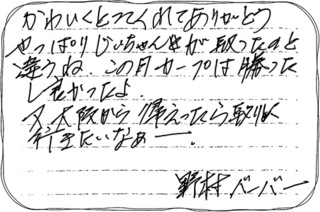 かわいくとってくれてありがとう
やっぱりじいちゃんが取ったのと
違うね。この月カープは勝った
し良かったよ
又大阪から帰えったら取りに
行きたいなぁー。
野村バーバー